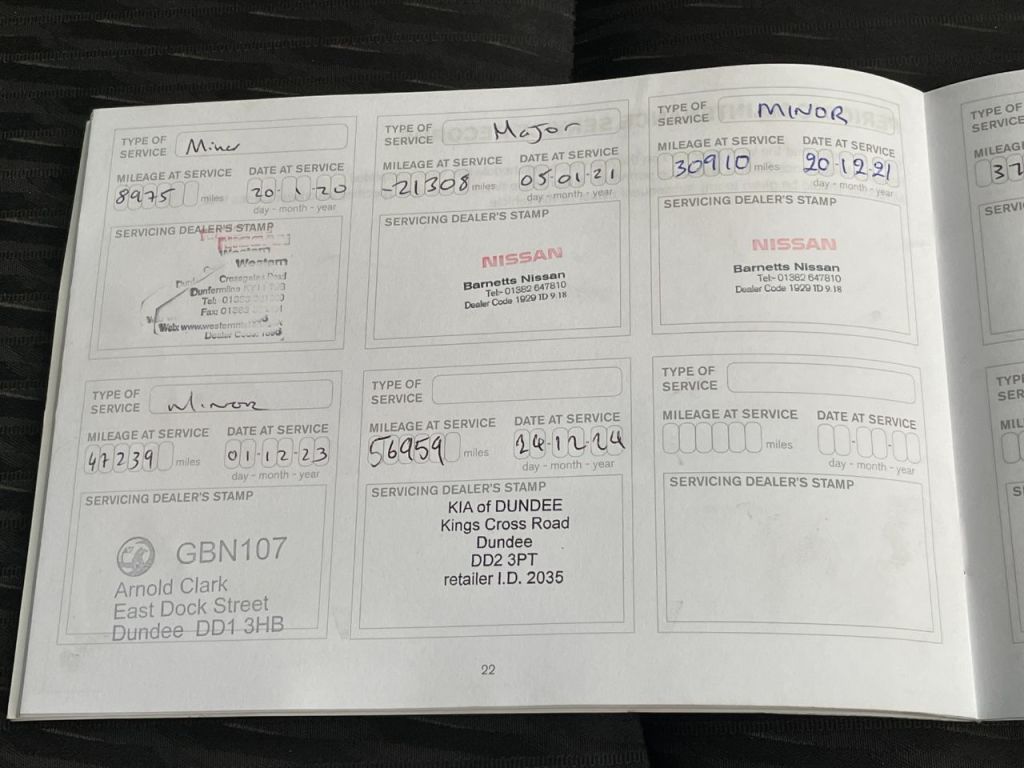 TYPE OF SERVICE Minor
MILEAGE AT SERVICE DATE AT SERVICE
8975 miles 20 1 20
day - month - year
SERVICING DEALER'S STAMP
Western
Western
Crossgates Road
Dunfermline
Tel: 01383
Fax: 01383
Web: www.western
Dealer Code:
TYPE OF SERVICE Major
MILEAGE AT SERVICE DATE AT SERVICE
-21308 miles 05-01-21
day - month - year
SERVICING DEALER'S STAMP
NISSAN
Barnetts Nissan
Tel:- 01382 647810
Dealer Code 1929 ID 9.18
TYPE OF SERVICE MINOR
MILEAGE AT SERVICE DATE AT SERVICE
30910 miles 20-12-21
day - month - year
SERVICING DEALER'S STAMP
NISSAN
Barnetts Nissan
Tel:- 01382 647810
Dealer Code 1929 ID 9.18
TYPE OF SERVICE Minor
MILEAGE AT SERVICE DATE AT SERVICE
47239 miles 01-12-23
day - month - year
SERVICING DEALER'S STAMP
GBN107
Arnold Clark
East Dock Street
Dundee DD1 3HB
TYPE OF SERVICE
MILEAGE AT SERVICE DATE AT SERVICE
56959 miles 24-12-24
day - month - year
SERVICING DEALER'S STAMP
KIA of DUNDEE
Kings Cross Road
Dundee
DD2 3PT
retailer I.D. 2035
TYPE OF SERVICE
MILEAGE AT SERVICE DATE AT SERVICE
miles
day - month - year
SERVICING DEALER'S STAMP
22
TYPE OF
SERVICE